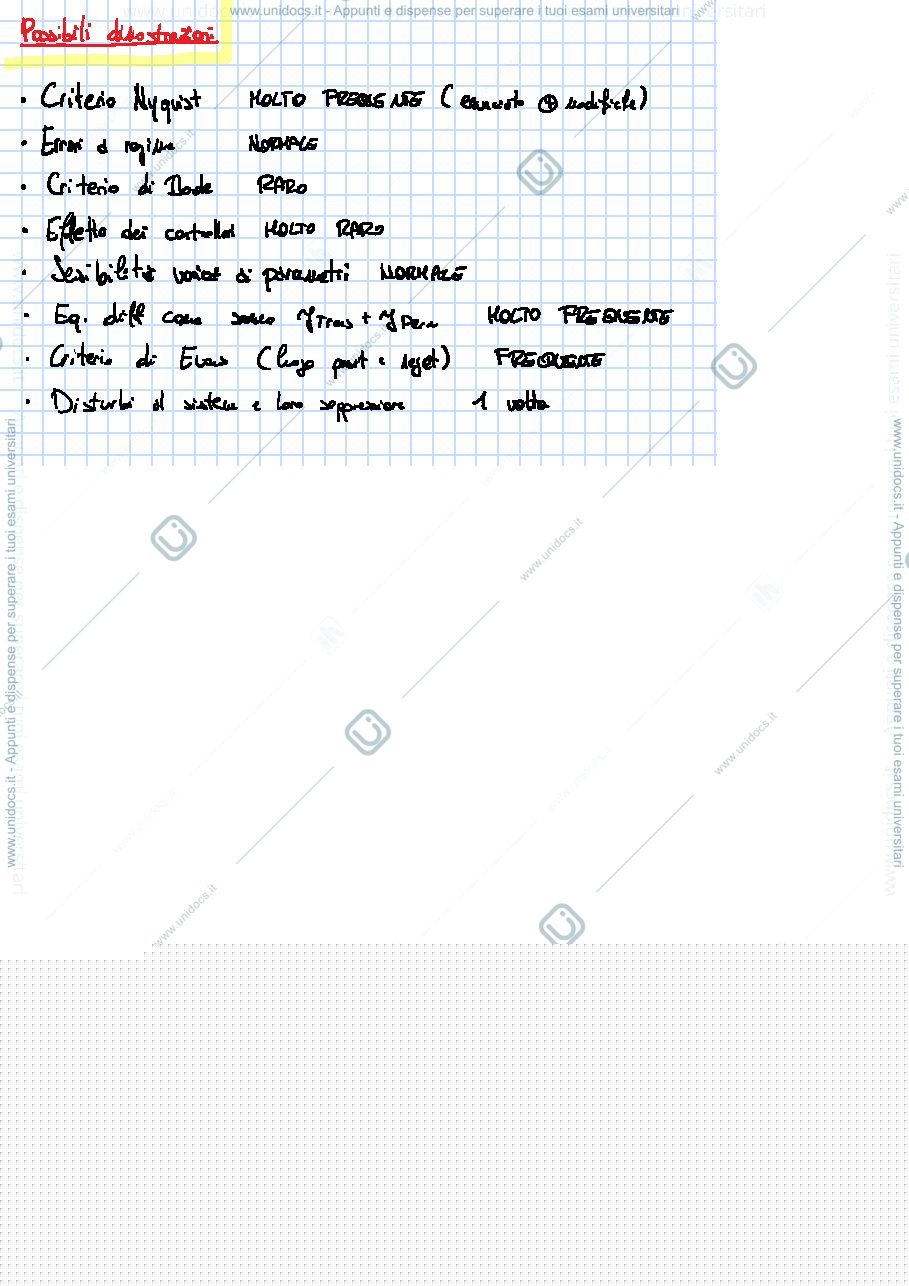 www.unidocs.it - Appunti e dispense per superare i tuoi esami universitari
Possibili dimostrazioni:
· Criterio Nyquist MOLTO FREQUENTE ( enunciato ⊕ modifiche)
· Errori a regime NORMALE
· Criterio di Bode RARO
· Effetto dei controllori MOLTO RARO
· Sensibilità variaz di parametri NORMALE
· Eq. diff come somma y Trans + y Perm MOLTO FREQUENTE
· Criterio di Evans (luogo punt e) FREQUENTE
· Disturbi al sistema e loro soppressione 1 volta
www.unidocs.it - Appunti e dispense per superare i tuoi esami universitari
www.unidocs.it - Appunti e dispense per superare i tuoi esami universitari
www.unidocs.it
www.unidocs.it
www.unidocs.it
www.unidocs.it